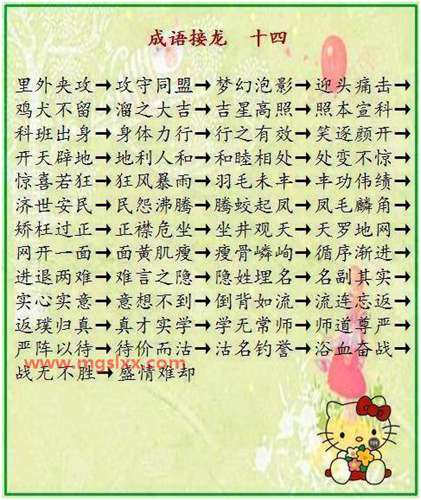 成语接龙 十四
里外夹攻→攻守同盟→梦幻泡影→迎头痛击→
鸡犬不留→溜之大吉→吉星高照→照本宣科→
科班出身→身体力行→行之有效→笑逐颜开→
开天辟地→地利人和→和睦相处→处变不惊→
惊喜若狂→狂风暴雨→羽毛未丰→丰功伟绩→
济世安民→民怨沸腾→腾蛟起凤→凤毛麟角→
矫枉过正→正襟危坐→坐井观天→天罗地网→
网开一面→面黄肌瘦→瘦骨嶙峋→循序渐进→
进退两难→难言之隐→隐姓埋名→名副其实→
实心实意→意想不到→倒背如流→流连忘返→
返璞归真→真才实学→学无常师→师道尊严→
严阵以待→待价而沽→沽名钓誉→浴血奋战→
www.mgslxx.com
战无不胜→盛情难却